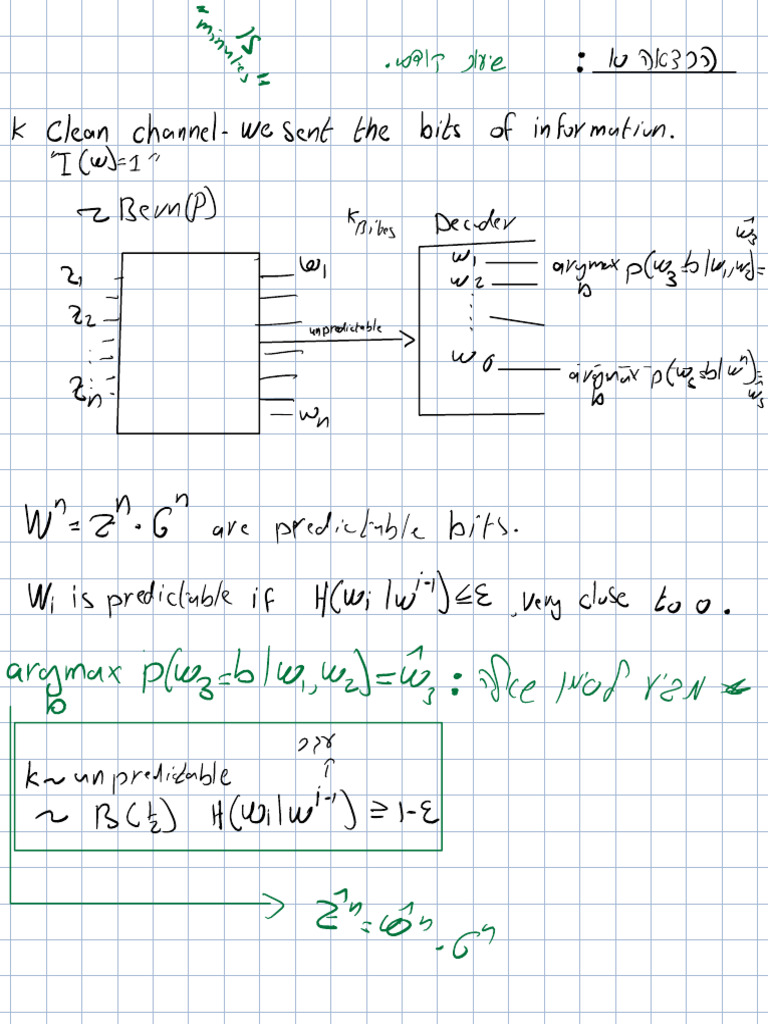 הרצאה 10 :
15 minutes =
k Clean channel - we sent the bits of information.
"I(w)=1"
~ Bern(P)
k Bites
Decoder
Z1
Z2
Zn
w1
wn
unpredictable
w1
w2
w6
argmax p(w3=b|w1,w2)= ŵ3
b
argmax p(w5=b|w^n)= ŵ5
b
W^n = Z^n · G^n are predictable bits.
Wi is predictable if H(wi|w^i-1) ≤ ε, very close to 0.
argmax p(w3=b|w1,w2)=ŵ3 :
b
k ~ unpredictable
~ B(1/2) H(wi|w^i-1) ≥ 1-ε
Ẑ^n = ŵ^n · G^n